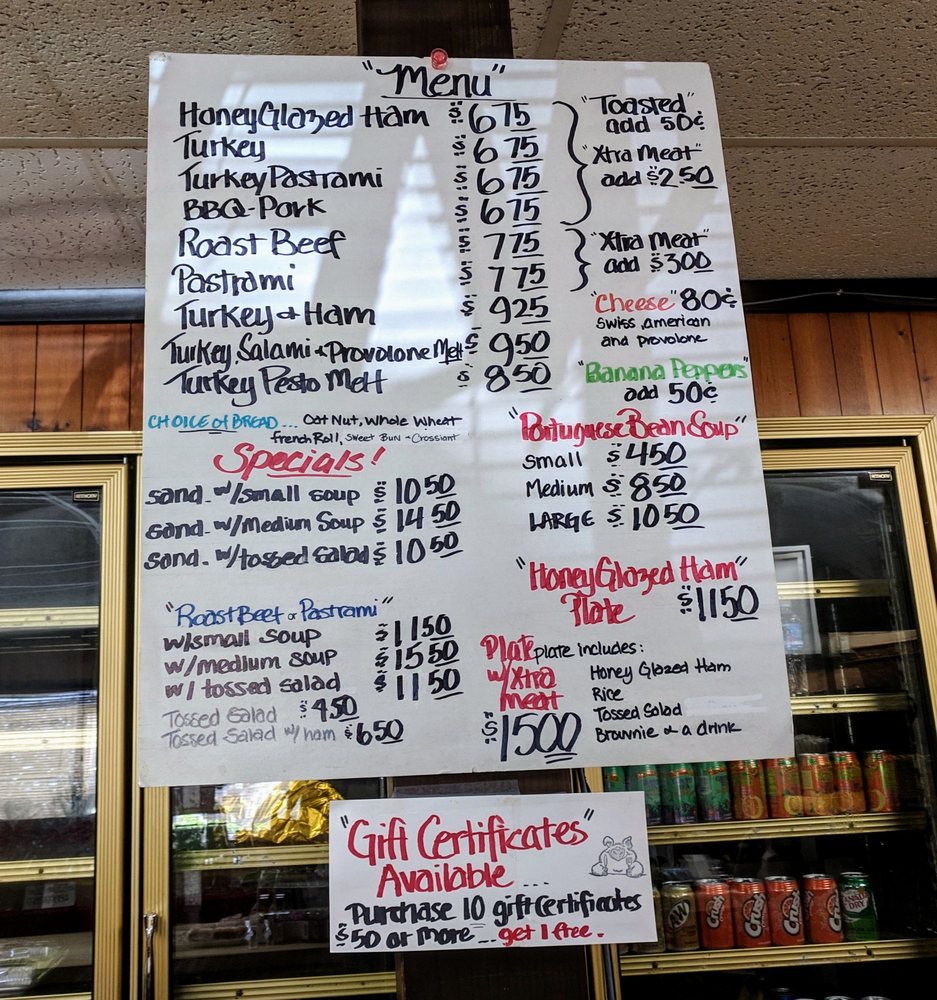 "Menu"
Honey Glazed Ham $6 75
Turkey $6 75
Turkey Pastrami $6 75
BBQ-Pork $6 75
Roast Beef $7 75
Pastrami $7 75
Turkey + Ham $9 25
Turkey, Salami + Provolone Melt $9 50
Turkey Pesto Melt $8 50
"Toasted"
add 50¢
"Xtra Meat"
add $2.50
"Xtra Meat"
add $3 00
"Cheese" 80¢
Swiss, american
and provolone
"Banana Peppers"
add 50¢
CHOICE of BREAD... Oat Nut, Whole Wheat
french Roll, Sweet Bun + Crossiant
Specials!
sand. w/small soup $10 50
sand. w/Medium Soup $14 50
sand. w/tossed salad $10 50
"Portuguese Bean Soup"
Small $4 50
Medium $8 50
LARGE $10 50
"Roast Beef or Pastrami"
w/small soup $11 50
w/medium soup $15 50
w/ tossed salad $11 50
Tossed Salad $4 50
Tossed Salad w/ ham $6 50
"Honey Glazed Ham"
Plate $11 50
Plate
w/Xtra
meat
$15 00
plate includes:
Honey Glazed Ham
Rice
Tossed Salad
Brownie & a drink
"Gift Certificates"
Available ...
Purchase 10 gift certificates
$50 or more ... get 1 free.
A&W
Crush
Crush
Crush
Crush
CANADA DRY